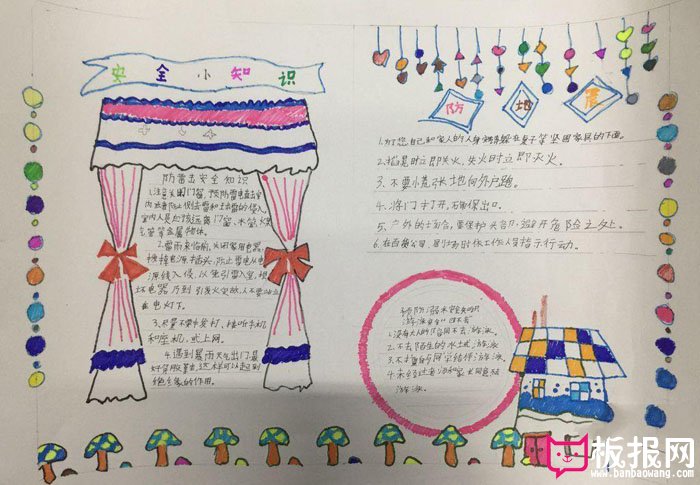 安全小知识
防雷击安全知识
1.注意关闭门窗，预防雷电直击室
内或者防止侧击雷和球雷的侵入。
室内人员应该远离门窗、水管、煤
气管等金属物体。
2.雷雨来临前，关闭家用电器，
拔掉电源插头，防止雷电从电
源线入侵，以免引雷入室，损
坏电器乃到引发火灾，人不要站立
在电灯下。
3.尽量不要
和座机，或上网。
4.遇到暴雨天气出门，最
好穿胶鞋，这样可以起到
绝缘的作用。
防地震
1.为了您自己和家人的人身 在桌子等坚固家具的下面。
2.摇晃时立即关火，失火时立即灭火。
3.不要慌张地向外户跑。
4.将门打开，确保出口。
5.户外的场合，要保护头部，避开危险之处。
6.在百货公司、剧场时依工作人员指示行动。
预防溺水安全知识
游泳安全"四不去"
1.没有大人的陪同不去游泳。
2.不去陌生的水域游泳
3.不 的同学结伴游泳。
4.未经过 和家长同意不去
游泳。
板报网
www.banbaowang.com